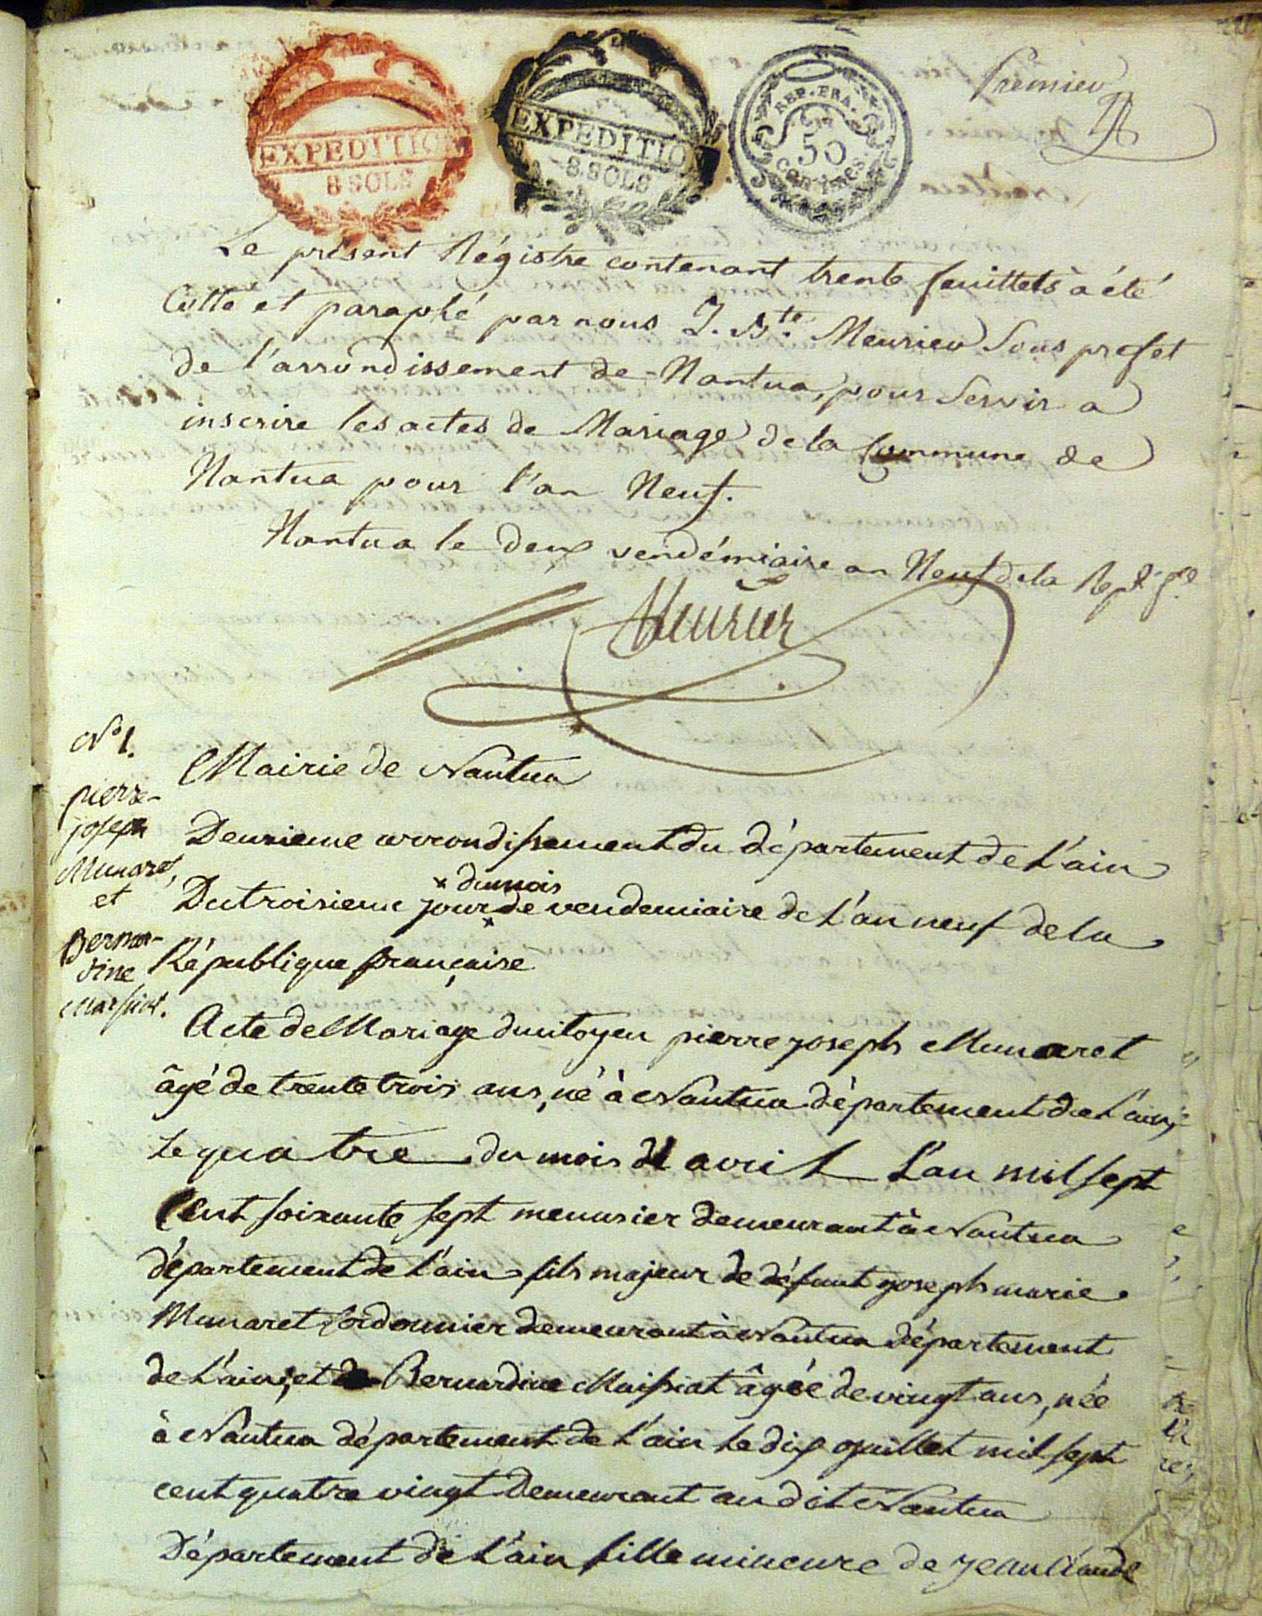 EXPEDITION
8 SOLS
EXPEDITION
8 SOLS
REP. FRA.
50
centimes
Premier
Le présent Régistre contenant trente feuillets à été
Cotté et paraphé par nous J. Bte. Meurier Sous préfet
de l'arrondissement de Nantua, pour Servir a
inscrire les actes de Mariage de la Commune de
Nantua pour l'an Neuf.
Nantua le deux vendémiaire an Neuf de la
Meurier
N° 1.
pierre
joseph
Munaret,
et
Bernar-
dine
Maissiat.
Mairie de Nantua
Deuxieme arrondissement du département de L'ain
x du mois
Du troisieme jour de vendemiaire de L'an neuf de la
République française
Acte de Mariage du citoyen pierre joseph Munaret
âgé de trente trois ans, né à Nantua département de L'ain,
Le quatre du mois d'avril L'an mil sept
Cent soixante sept menusier demeurant à Nantua
département de L'ain fils majeur de défunt joseph marie
Munaret Cordonnier demeurant à Nantua département
de L'ain, et de Bernardine Maissiat âgée de vingt ans, née
à Nantua département de L'ain le dix juillet mil sept
cent quatre vingt Demeurant au dit Nantua
Département de L'ain fille mineure de Jean Claude